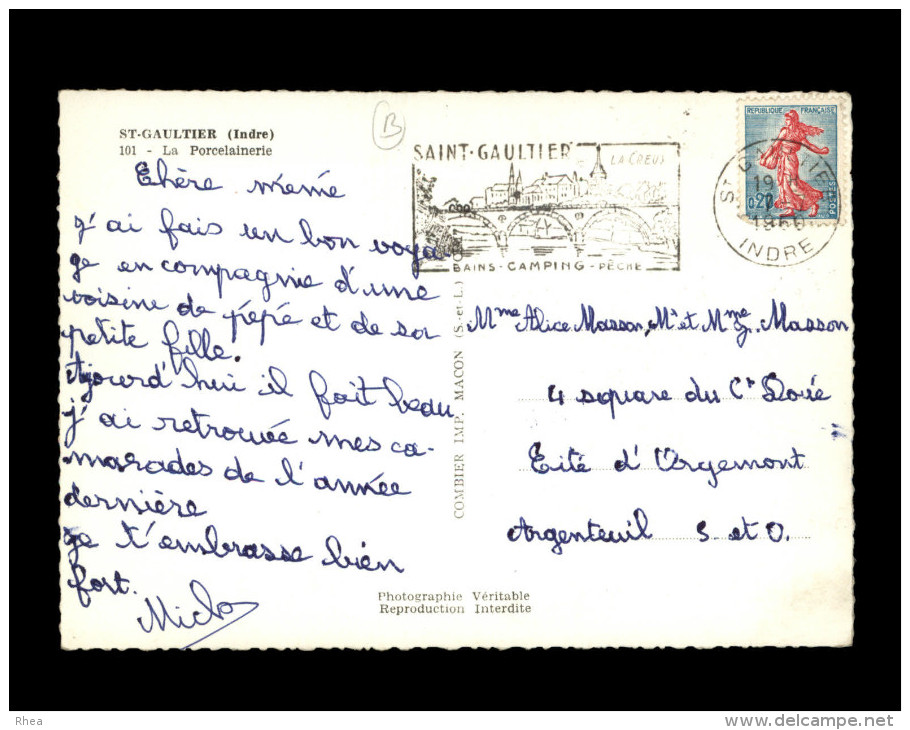 ST-GAULTIER (Indre)
101 - La Porcelainerie
B
Chère mémé
j'ai fais un bon voya-
ge en compagnie d'une
voisine de pépé et de sa
petite fille.
Aujourd'hui il fait beau
j'ai retrouvée mes ca-
marades de l'année
dernière
Je t'embrasse bien
fort.
SAINT-GAULTIER
LA CREUSE
BAINS - CAMPING - PÊCHE
REPUBLIQUE FRANÇAISE
0,20
POSTES
19 H
INDRE
COMBIER IMP. MACON (S.-et-L.)
Mme Alice Masson, Mr et Mme J. Masson
4 square du Ct Doué
Cité d'Orgemont
Argenteuil S. et O.
Photographie Véritable
Reproduction Interdite
Rhea
www.delcampe.net